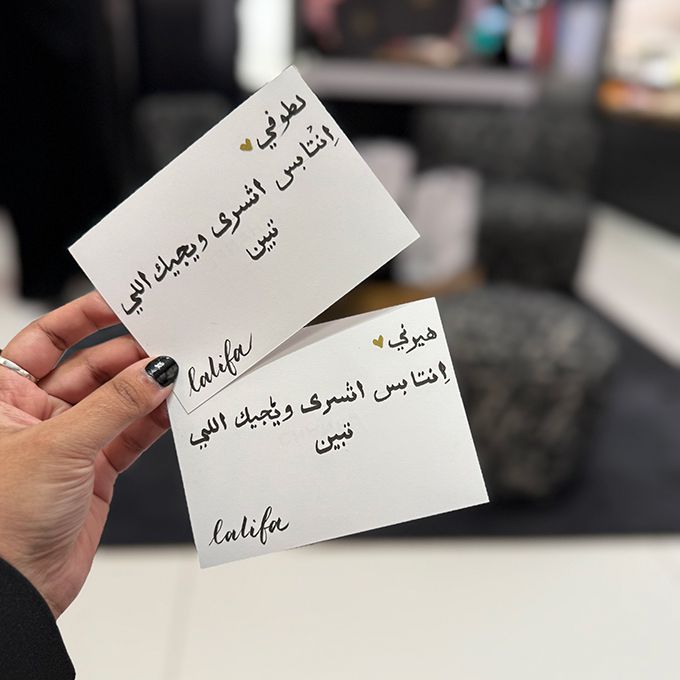 لطوفي
إنتا بس اشري ويجيك اللي
تبين
lalifa
هيرني
إنتا بس اشري ويجيك اللي
تبين
lalifa